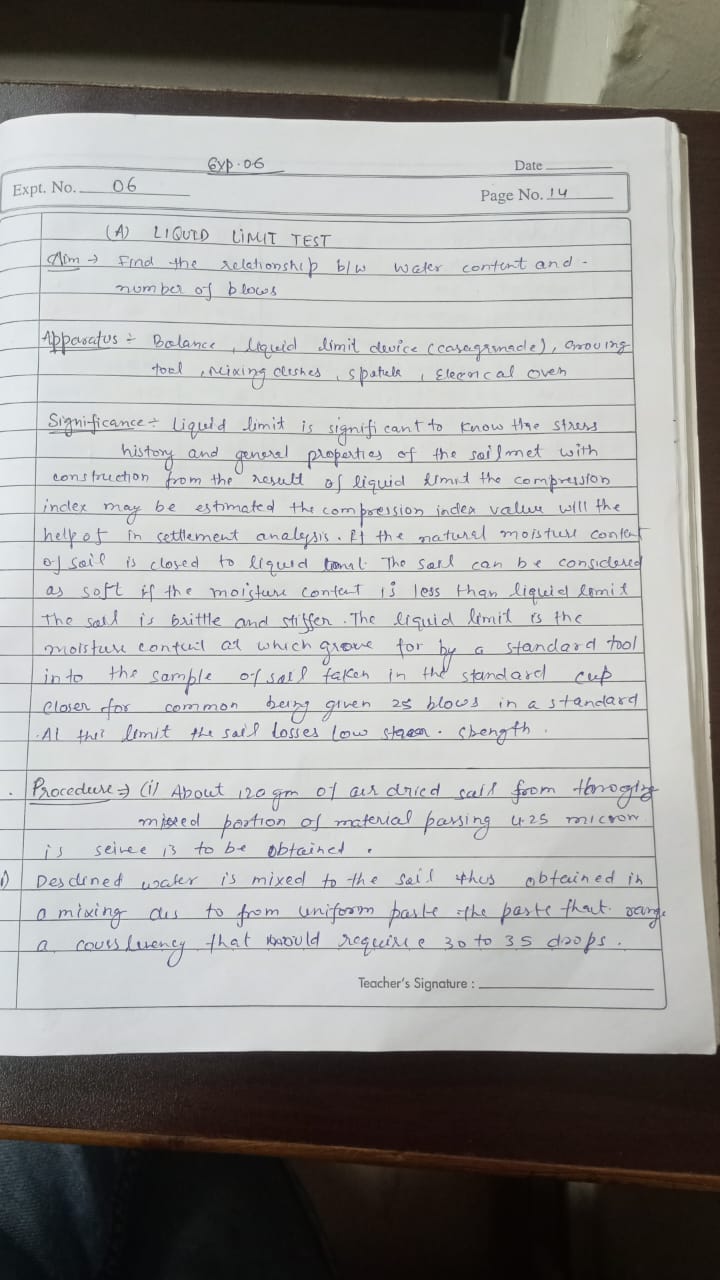 Exp. 06
Date
Expt. No. 06
Page No. 14
(A) LIQUID LIMIT TEST
Aim → Find the relationship b/w water content and -
number of blows
Apparatus ÷ Balance, liquid limit device (casagrande),
tool, Mixing dishes, spatula, Elecrical oven
Significance ÷ liquid limit is significant to know the stress
history and general properties of the soil met with
construction from the result of liquid limit the compression
index may be estimated the compression index value will the
help of in settlement analysis. If the natural moisture content
of soil is closed to liquid The soil can be considered
as soft if the moisture content is less than liquid limit
The soil is brittle and stiffen. The liquid limit is the
moisture content at which grove for by a standard tool
in to the sample of soil taken in the standard cup
closer for common being given 25 blows in a standard
At this limit the soil losses low
Procedure ⇒ (i) About 120 gm of air dried soil from
mixed portion of material passing 4.25 micron
is is to be obtained.
water is mixed to the soil thus obtained in
a mixing to from uniform paste the paste that
a that would require 30 to 35 drops.
Teacher's Signature :